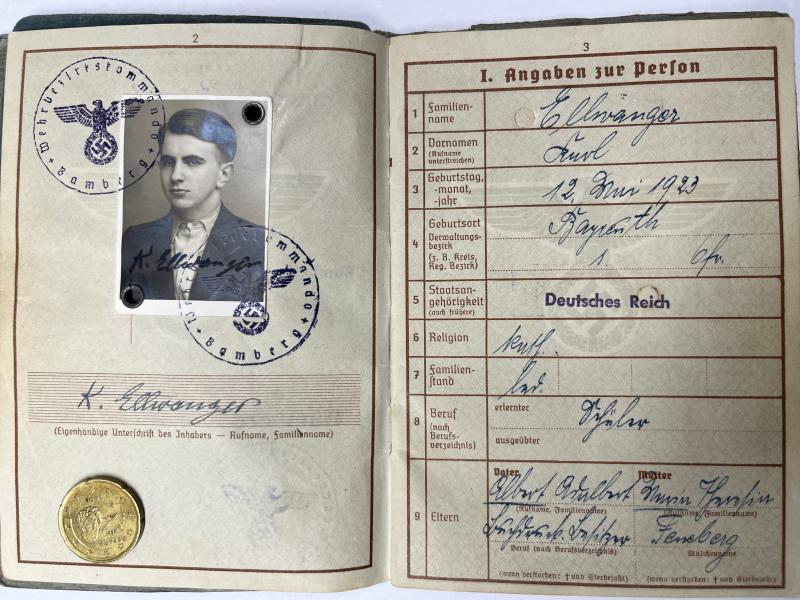 2
Wehrbezirkskommando
Bamberg
K. Ellwanger
Wehrbezirkskommando
Bamberg
K. Ellwanger
(Eigenhändige Unterschrift des Inhabers — Rufname, Familienname)
3
I. Angaben zur Person
1 Familien-
name
Ellwanger
2 Vornamen
(Rufname
unterstreichen)
Karl
3 Geburtstag,
-monat,
-jahr
12. Mai 1923
4 Geburtsort
Verwaltungs-
bezirk
(z. B. Kreis,
Reg. Bezirk)
Bayreuth
5 Staatsan-
gehörigkeit
(auch frühere)
Deutsches Reich
6 Religion
kath.
7 Familien-
stand
led.
8 Beruf
(nach
Berufs-
verzeichnis)
erlernter
Schüler
ausgeübter
9 Eltern
Vater
Mutter
Albert Adalbert
Maria Theresia
(Rufname, Familienname)
(Rufname, Familienname)
Buchdruck. Besitzer
Feneberg
Beruf (nach Berufsverzeichnis)
Mädchenname
(wenn verstorben: † und Sterbejahr)
(wenn verstorben: † und Sterbejahr)